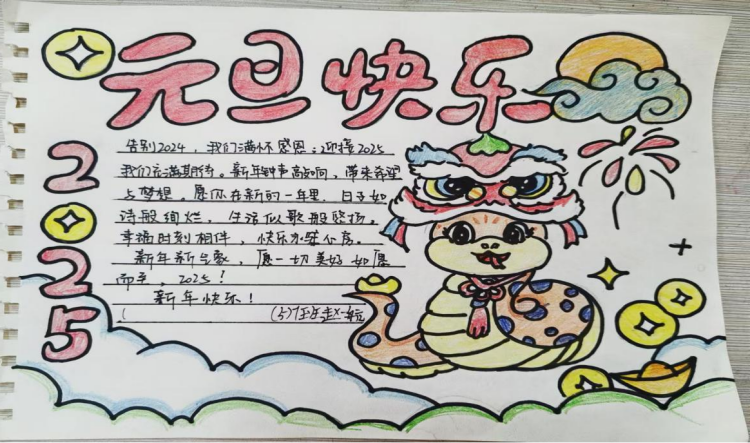 元旦快乐
2025
告别2024，我们满怀感恩；迎接2025
我们充满期待。新年钟声敲响，带来希望
与梦想。愿你在新的一年里，日子如
诗般绚烂，生活似歌般悠扬。
幸福时刻相伴，快乐永驻心房。
新年新气象，愿一切美好如愿
而至，2025！
新年快乐！
(5)